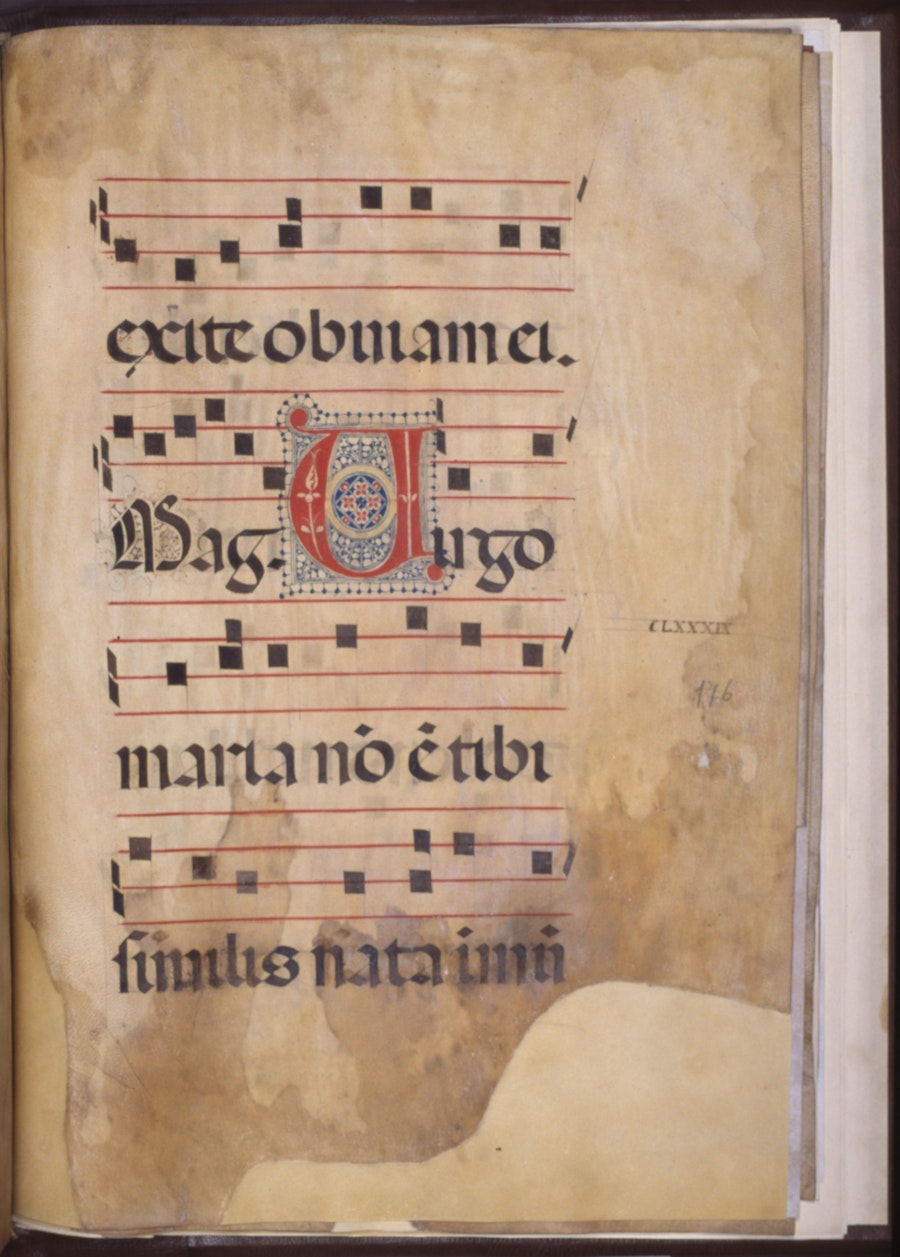 exite obuiam ei.
Mag. Uirgo
maria nō ē tibi
CLXXXIX
176
similis nata ī mū